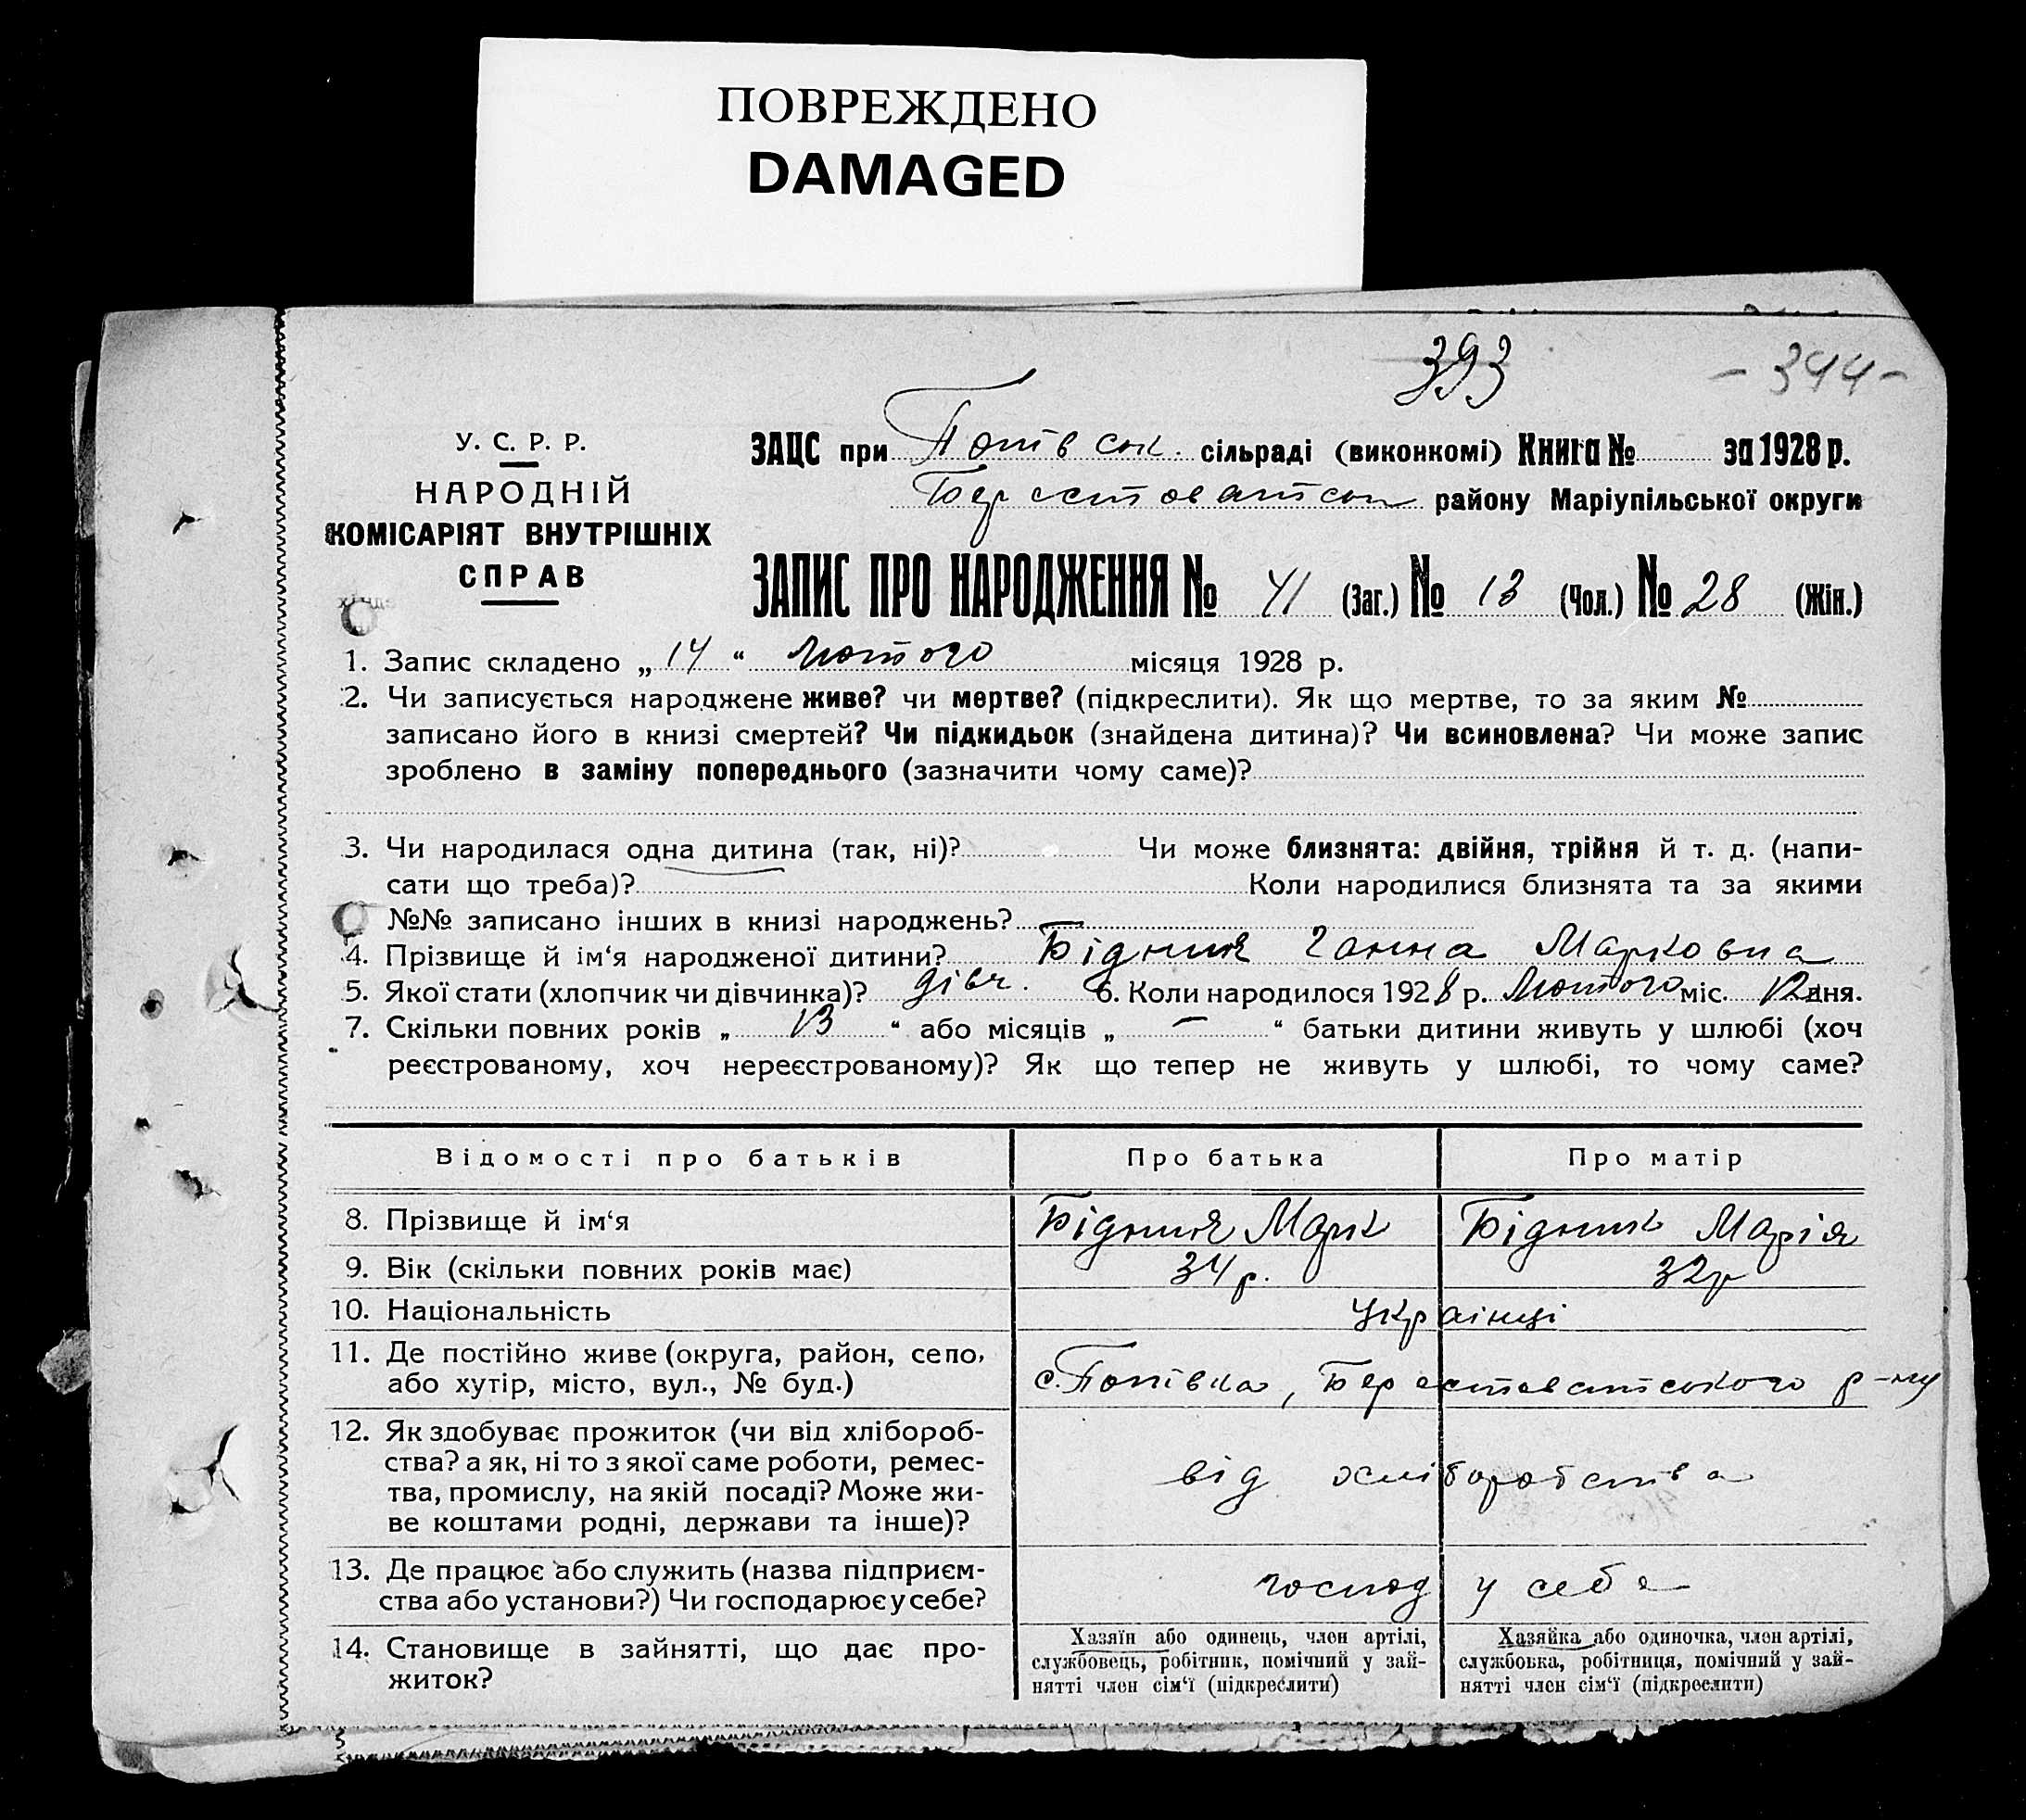 ПОВРЕЖДЕНО
DAMAGED
393
- 344 -
У. С. Р. Р.
НАРОДНІЙ
КОМІСАРІЯТ ВНУТРІШНІХ
СПРАВ
ЗАЦС при Попівськ. сільраді (виконкомі) Книга № за 1928 р.
Берестоватськ району Маріупільської округи
ЗАПИС ПРО НАРОДЖЕННЯ № 41 (Заг.) № 13 (Чол.) № 28 (Жін.)
1. Запис складено „ 14 “ Лютого місяця 1928 р.
2. Чи записується народжене живе? чи мертве? (підкреслити). Як що мертве, то за яким №
записано його в книзі смертей? Чи підкидьок (знайдена дитина)? Чи всиновлена? Чи може запис
зроблено в заміну попереднього (зазначити чому саме)?
3. Чи народилася одна дитина (так, ні)? Чи може близнята: двійня, трійня й т. д. (напи-
сати що треба)? Коли народилися близнята та за якими
№№ записано інших в книзі народжень?
4. Прізвище й ім‘я народженої дитини? Ганна Марковна
5. Якої стати (хлопчик чи дівчинка)? дівч. 6. Коли народилося 1928 р. Лютого міс. 12 дня.
7. Скільки повних років „ 13 “ або місяців „ — “ батьки дитини живуть у шлюбі (хоч
реєстрованому, хоч нереєстрованому)? Як що тепер не живуть у шлюбі, то чому саме?
Відомості про батьків Про батька Про матір
8. Прізвище й ім‘я Марк Марія
9. Вік (скільки повних років має) 34 р. 32 р
10. Національність Українці
11. Де постійно живе (округа, район, село,
або хутір, місто, вул., № буд.) с. Попівка, Берестоватського р-ну
12. Як здобуває прожиток (чи від хлібороб-
ства? а як, ні то з якої саме роботи, ремес-
тва, промислу, на якій посаді? Може жи-
ве коштами родні, держави та інше)? від хліборобства
13. Де працює або служить (назва підприєм-
ства або установи?) Чи господарює у себе? господ у себе
14. Становище в зайнятті, що дає про-
житок?
Хазяїн або одинець, член артілі,
службовець, робітник, помічний у зай-
нятті член сім‘ї (підкреслити)
Хазяйка або одиночка, член артілі,
службовка, робітниця, помічний у зай-
нятті член сім‘ї (підкреслити)